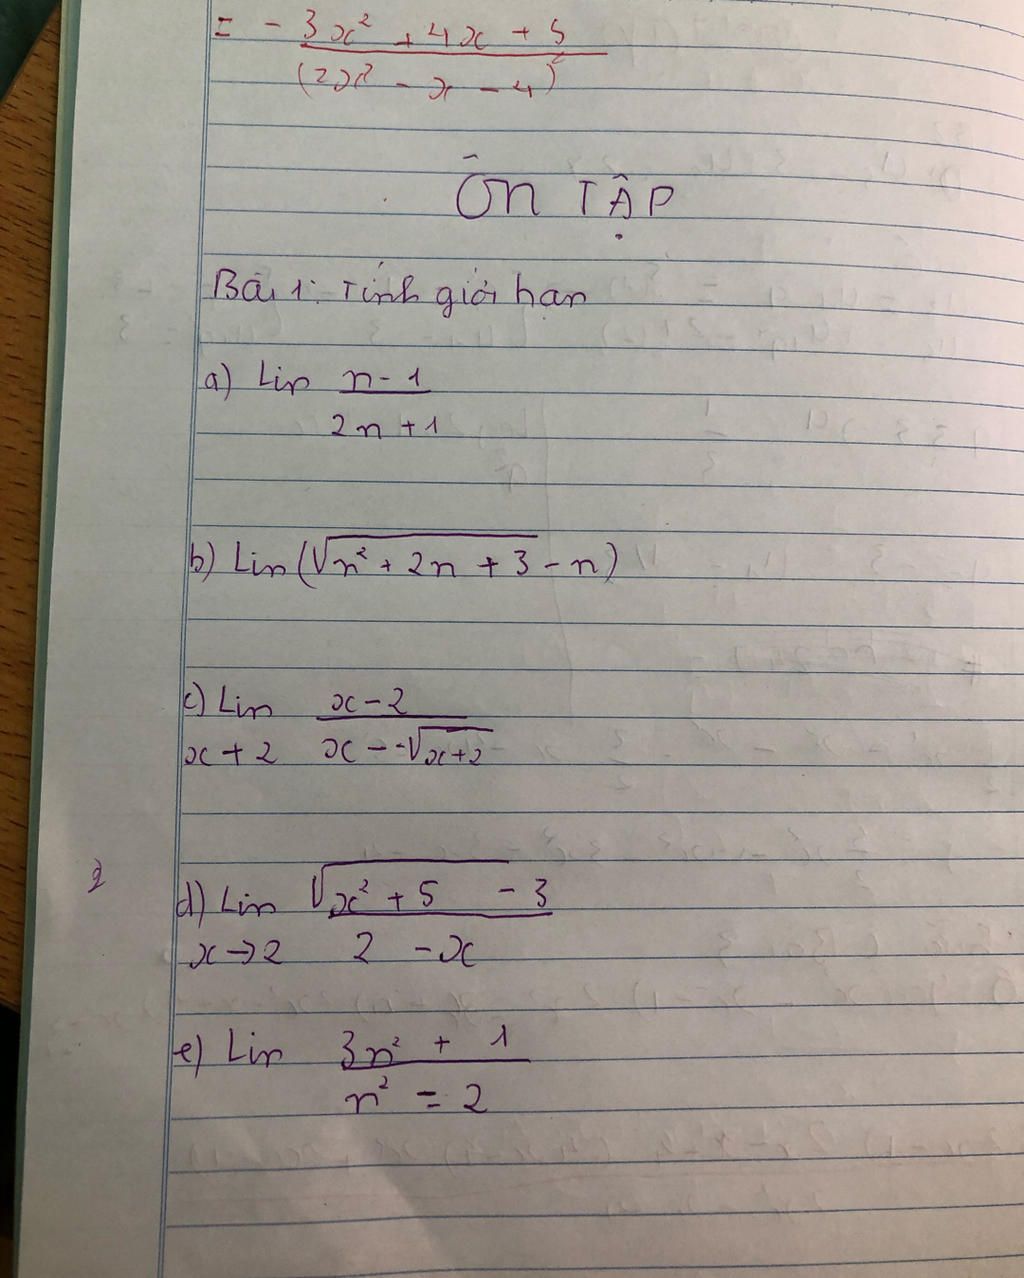 = - 3x² + 4x + 5
(2x² - x - 4)²
ÔN TẬP
Bài 1: Tính giới hạn
a) Lim n - 1
2n + 1
b) Lim (√n² + 2n + 3 - n)
c) Lim x - 2
x + 2 x - √x+2
d) Lim √x² + 5 - 3
x → 2 2 - x
2
e) Lim 3n² + 1
n² = 2